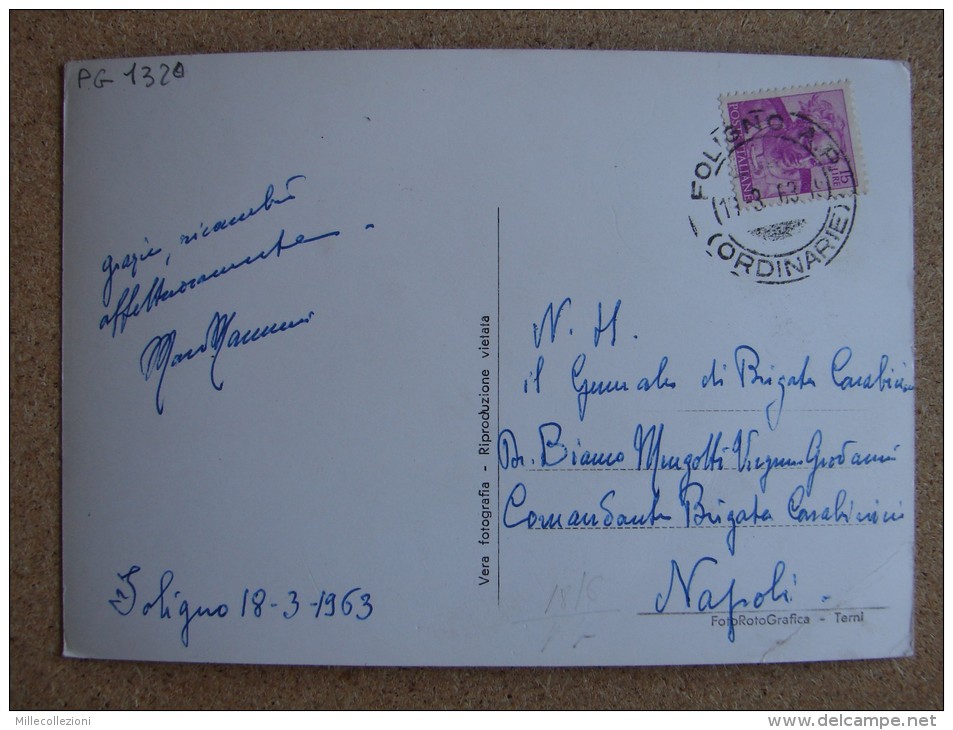 PG 1320
POSTE ITALIANE
15
LIRE
FOLIGNO A.P.
3 63
(ORDINARIE)
grazie, ricambio
affettuosamente -
N. H.
il Generale di Brigata Carabinieri
Dr. Bianco Mengotti
Comandante Brigata Carabinieri
Napoli -
Foligno 18-3-1963
Vera fotografia - Riproduzione vietata
FotoRotoGrafica - Terni
Millecollezioni
www.delcampe.net